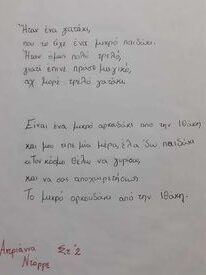 Ήταν ένα γατάκι,
που το είχε ένα μικρό παιδάκι.
Ήταν όμως πολύ τρελό,
γιατί έπινε πράσο μαγικό,
αχ μωρέ τρελό γατάκι.
Είναι ένα μικρό αρκουδάκι από την Ιθάκη
και μου είπε μία μέρα, έλα δω παιδάκι
τον κόσμο θέλω να γυρίσω,
και να σας αποχαιρετήσω
Το μικρό αρκουδάκι από την Ιθάκη.
Αντριάννα
Ντόρρε
Στ'2